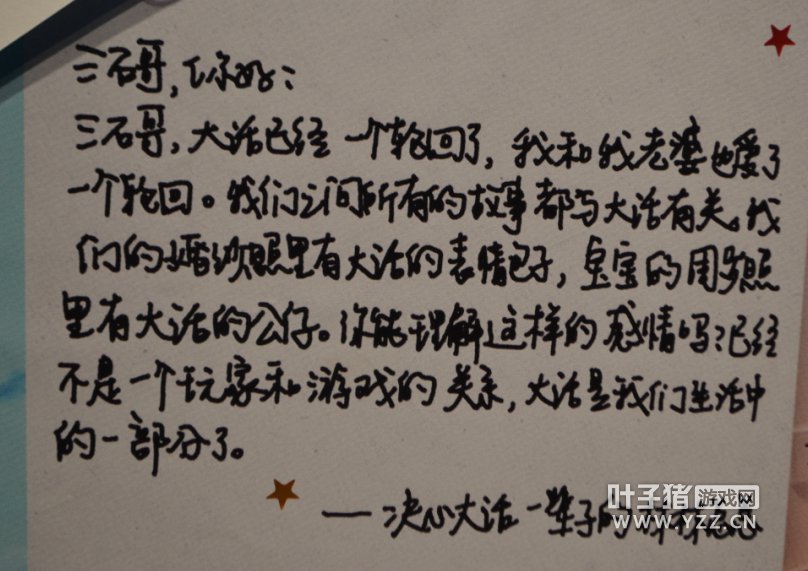 三石哥，你好：
三石哥，大话已经一个轮回了，我和我老婆也爱了
一个轮回。我们之间所有的故事都与大话有关。我
们的婚纱照里有大话的表情包子，宝宝的周岁照
里有大话的公仔。你能理解这样的感情吗？已经
不是一个玩家和游戏的关系，大话是我们生活中
的一部分了。
——决心大话一辈子的
叶子猪 游戏网
WWW.YZZ.CN